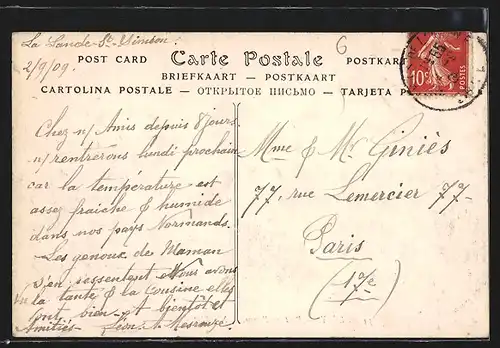 La Lande-St-Siméon.
2/9/09.
6
Carte Postale
POST CARD
POSTKAR
BRIEFKAART - POSTKAART
CARTOLINA POSTALE - ОТКРЫТОЕ ПИСЬМО - TARJETA P
10c
POSTES
Chez n/ Amis depuis 8 jours
n/ rentrerons lundi prochain
car la température est
assez fraiche & humide
dans nos pays Normands.
Les genoux de Maman
s'en ressentent Nous avons
vu la tante & la cousine elles
sont bien et bientôt
Amitiés Léon
Mme & Mr Giniès
77, rue Lemercier 77
Paris
(17e)